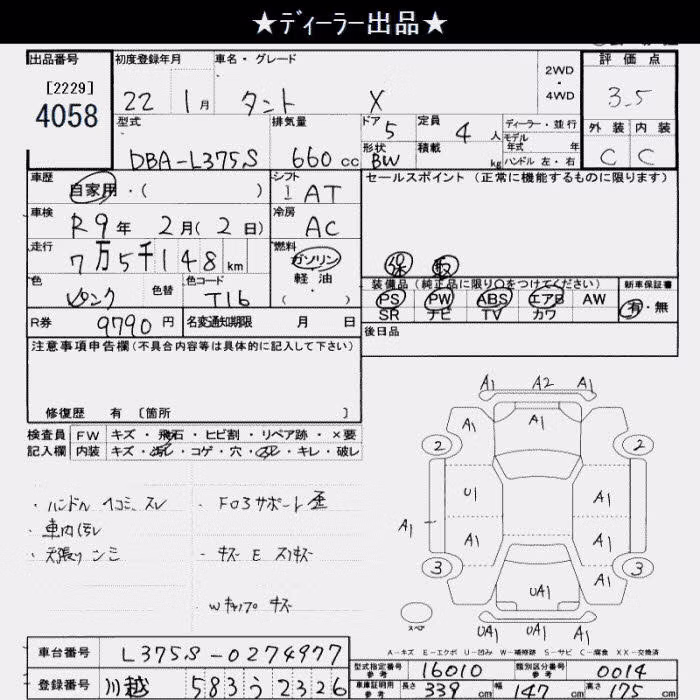 ★ディーラー出品★
出品番号
[2229]
4058
初度登録年月
22 1月
車名・グレード
タント X
2WD
・
4WD
評価点
3.5
外装 内装
C C
型式
DBA-L375S
排気量
660 cc
ドア 5
形状 BW
定員 4 人
積載 kg
ディーラー・並行
モデル
年式 年
ハンドル 左・右
車歴
自家用・( )
シフト
I AT
セールスポイント (正常に機能するものに限ります)
保 取
車検
R9年 2月(2日)
冷房
AC
走行
7万5千148km
燃料
ガソリン
軽・油
( )
色
ピンク
色替
色コード
T16
装備品(純正品に限り○をつけてください)
PS PW ABS エアB AW
SR ナビ TV カワ
新車保証書
有・無
R券 9790円
名変通知期限 月 日
後日品
注意事項申告欄(不具合内容等は具体的に記入して下さい)
修復歴 有 〔箇所 〕
検査員 FW キズ・飛石・ヒビ割・リペア跡・×要
記入欄 内装 キズ・汚れ・コゲ・穴・スレ・キレ・破レ
・ハンドル ヘコミ、スレ
・車内汚レ
・天張りシミ
・F03サポート歪
・キズ E スリキズ
Wキャップ キズ
A1 A2 A1
A1 A1
2 2
U1 A1
A1 A1 A1
3 3
UA1 A1
スペア
UA1 UA1 A1
A-キズ E-エクボ U-凹み W-補修跡 S-サビ C-腐食 XX-交換済
車台番号 L375S-0274977
登録番号 川越 583 う 2326
型式指定番号
参考
16010
類別区分番号
参考
0014
車庫証明用
参考
長さ 339 cm 幅 147 cm 高さ 175 cm